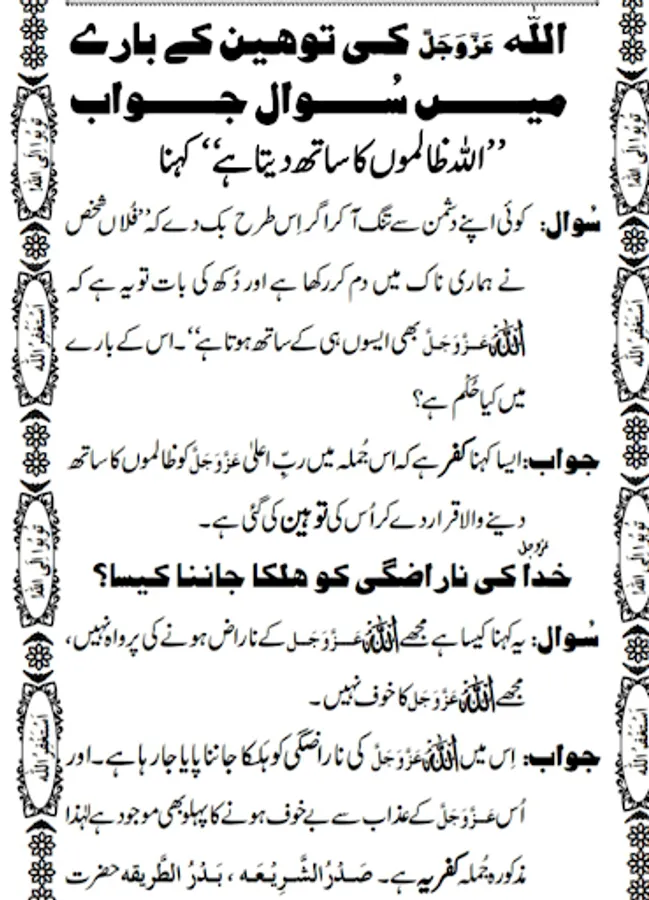 اللہ عَزَّوَجَلَّ کی توہین کے بارے
میں سُوال جواب
’’اللہ ظالموں کا ساتھ دیتا ہے‘‘ کہنا
سُوال: کوئی اپنے دشمن سے تنگ آ کر اگر اِس طرح بک دے کہ’’فُلاں شخص
نے ہماری ناک میں دم کر رکھا ہے اور دُکھ کی بات تو یہ ہے کہ
اللہ عَزَّوَجَلَّ بھی ایسوں ہی کے ساتھ ہوتا ہے‘‘۔ اس کے بارے
میں کیا حُکْم ہے؟
جواب: ایسا کہنا کفر ہے کہ اس جُملہ میں ربِّ اعلیٰ عَزَّوَجَلَّ کو ظالموں کا ساتھ
دینے والا قرار دے کر اُس کی توہین کی گئی ہے۔
خدا عَزَّوَجَلَّ کی ناراضگی کو ہلکا جاننا کیسا؟
سُوال: یہ کہنا کیسا ہے مجھے اللہ عَزَّوَجَلَّ کے ناراض ہونے کی پرواہ نہیں،
مجھے اللہ عَزَّوَجَلَّ کا خوف نہیں۔
جواب: اِس میں اللہ عَزَّوَجَلَّ کی ناراضگی کو ہلکا جاننا پایا جا رہا ہے۔ اور
اُس عَزَّوَجَلَّ کے عذاب سے بے خوف ہونے کا پہلو بھی موجود ہے لہٰذا
مذکورہ جُملہ کفریہ ہے۔ صَدْرُ الشَّرِیْعَہ ، بَدْرُ الطَّرِیقہ حضرت
تُوبُوا اِلَی اللہ!
اَسْتَغْفِرُ اللہ
تُوبُوا اِلَی اللہ!
اَسْتَغْفِرُ اللہ
تُوبُوا اِلَی اللہ!
اَسْتَغْفِرُ اللہ
تُوبُوا اِلَی اللہ!
اَسْتَغْفِرُ اللہ